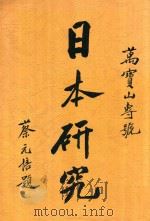 萬寶山專號
日本研究
蔡元培題